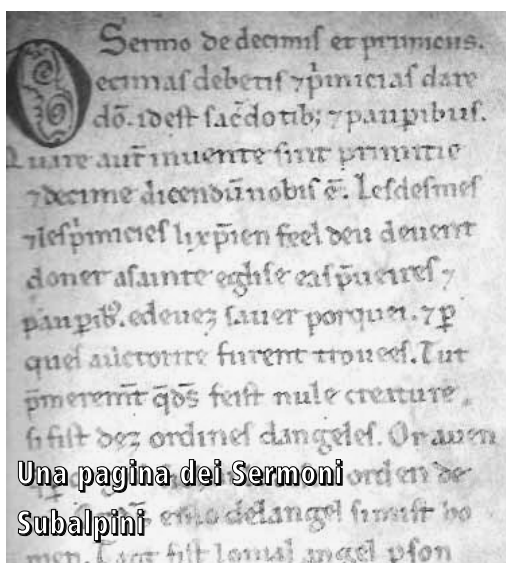 Sermo de decimis et primicus.
Decimas debetis ⁊ p̄micias dare
dō. id est sac̄dotib; ⁊ pauꝑibus.
Quare aut̄ inuente sint primitie
⁊ decime dicendū nobis ē. Lesdesmes
⁊ les p̄micies li xp̄ien feel deu deuent
doner a sainte eglise eas p̄ueires ⁊
pauꝑib᷒. edeuez sauer porquei. ⁊ ꝑ
quel auctorite furent trouees. Tut
p̄meremt̄ q̄ds̄ feist nule creature,
si fist dez ordines dangeles. Or auen
orden de
Una pagina dei Sermoni
Subalpini
e mo delangel si mist ho
men. fist angel pson